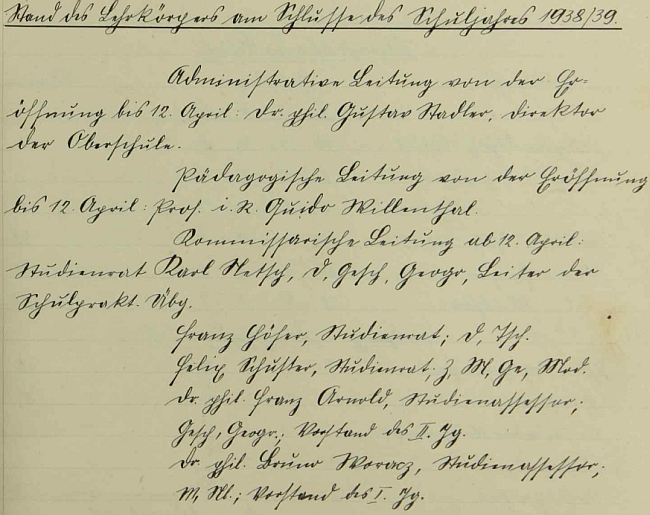 Stand des Lehrkörpers am Schlusse des Schuljahres 1938/39.
Administrative Leitung von der Er-
öffnung bis 12. April: Dr. phil. Gustav Stadler, Direktor
der Oberschule.
Pädagogische Leitung von der Eröffnung
bis 12. April: Prof. i. R. Guido Willenthal.
Kommissarische Leitung ab 12. April:
Studienrat Karl Netsch, D, Gesch, Geogr, Leiter der
Schulprakt. Übg.
Franz Höfer, Studienrat; D, Tsch.
Felix Schuster, Studienrat, Z, M, Ge, Mod.
Dr. phil. Franz Arnold, Studienassessor;
Gesch, Geogr.; Vorstand des II. Jg.
Dr. phil. Bruno Woracz, Studienassessor;
M, Nl.; Vorstand des I. Jg.